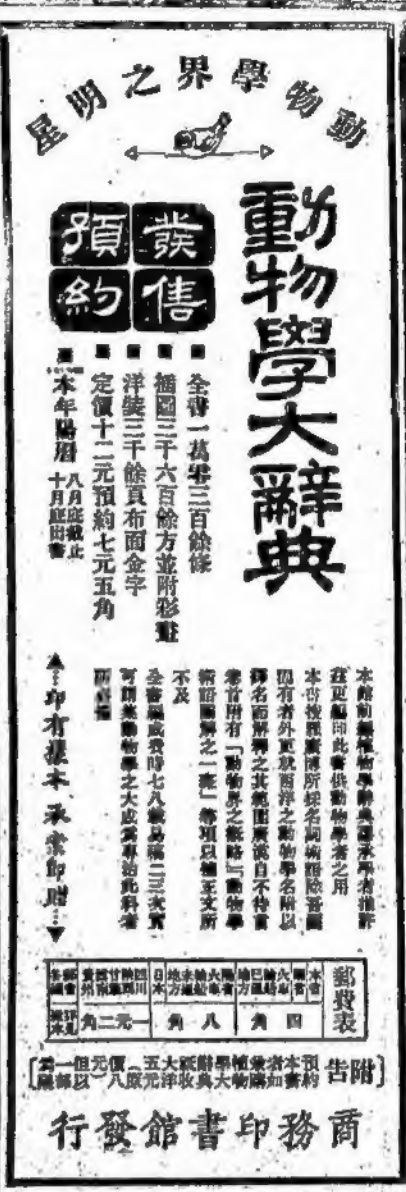 動物學界之明星
動物學大辭典
發售
預約
全書一萬零三百餘條
插圖三千六百餘方並附彩畫
洋裝三千餘頁布面金字
定價十二元預約七元五角
本年陽曆八月底截止
十月底出書
本館前編植物學辭典
茲更編印此書供動物學者之用
本書搜羅廣博所採名詞術語除吾國
固有者外更就西洋之動物學名附以
譯名而解釋之其範圍廣泛自不待言
卷首附有「動物界之概略」「動物學
術語圖解之一班」等項以補正文所
不及
全書編成費時七八載易稿二三次實
可謂集動物學之大成為專治此科者
所必備
印有樣本承索即贈
郵費表
本省
四角
八角
日本
四川
一元二角
附告
預約本書者如兼購植物學大辭典祇收大洋五元（原價八元）但以一部為限
商務印書館發行